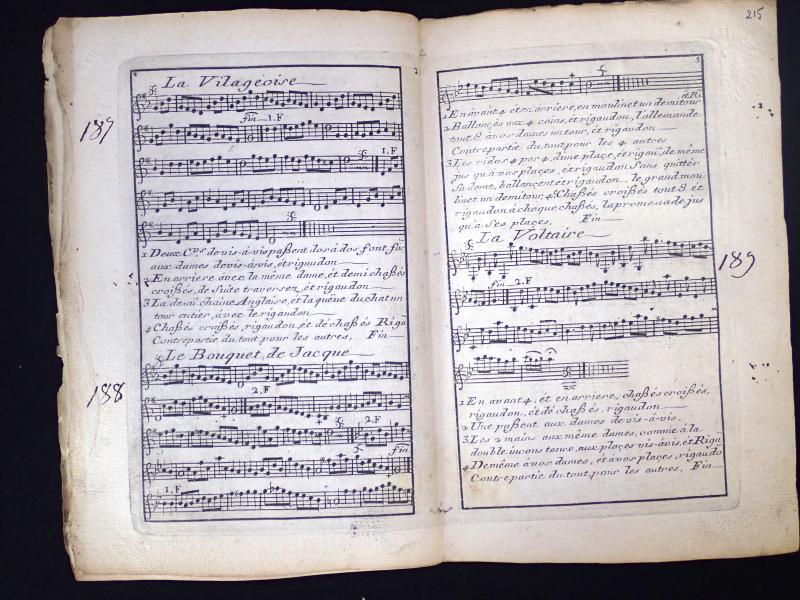 4
La Vilageoise
187
fin 1.F
1.F
1 Deux C.ples de vis-à-vis paßent dos à dos, font, face
aux dames de vis-à-vis, et rigaudon
2 En arriere avec la même dame, et demi chaßés
croißés, de suite traversez, et rigaudon
3 La demi chaine Anglaise, et la queue du chat un
tour entier, avec le rigaudon
4 Chaßés croißés, rigaudon, et dé chaßés Riga
Contrepartie du tout pour les autres, Fin
Le Bouquet, de Jacque
188
2.F
2.F
fin
1.F
215
5
et Ri
1 En avant 4 et en arriere, en moulinet un demi tour
2 Ballancés aux 4 coins, et rigaudon, l'allemande
tout 8 à vos dames un tour, et rigaudon
Contrepartie du tout pour les 4 autres
3 Les ridos 4 par 4, d'une plaçe, et rigau, de même
jus qu'à vos plaçes, et rigaudon Sans quitter
Sa dame, ballançent et rigaudon, le grand mou-
linet un demi tour, 4 Chaßés croißés tout 8 et
rigaudon à cheque chaßés, la promenade jus
qu'a Ses plaçes, Fin
La Voltaire
189
fin 2.F
1 En avant 4, et en arriere, chaßés croißés,
rigaudon, et dé chaßés, rigaudon
2 Une paßent aux dames de vis-à-vis.
3 Les 2 mains aux même dames, comme à la
double incons tance, aux plaçes vis-àvis, et Riga
4 De même à vos dames, et à vos plaçes, rigaudo
Contrepartie du tout pour les autres, Fin